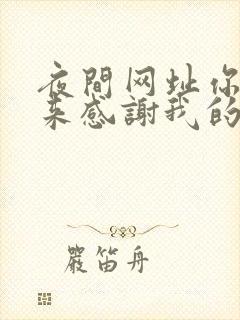 夜間网址你
来感謝我的
嚴笛舟